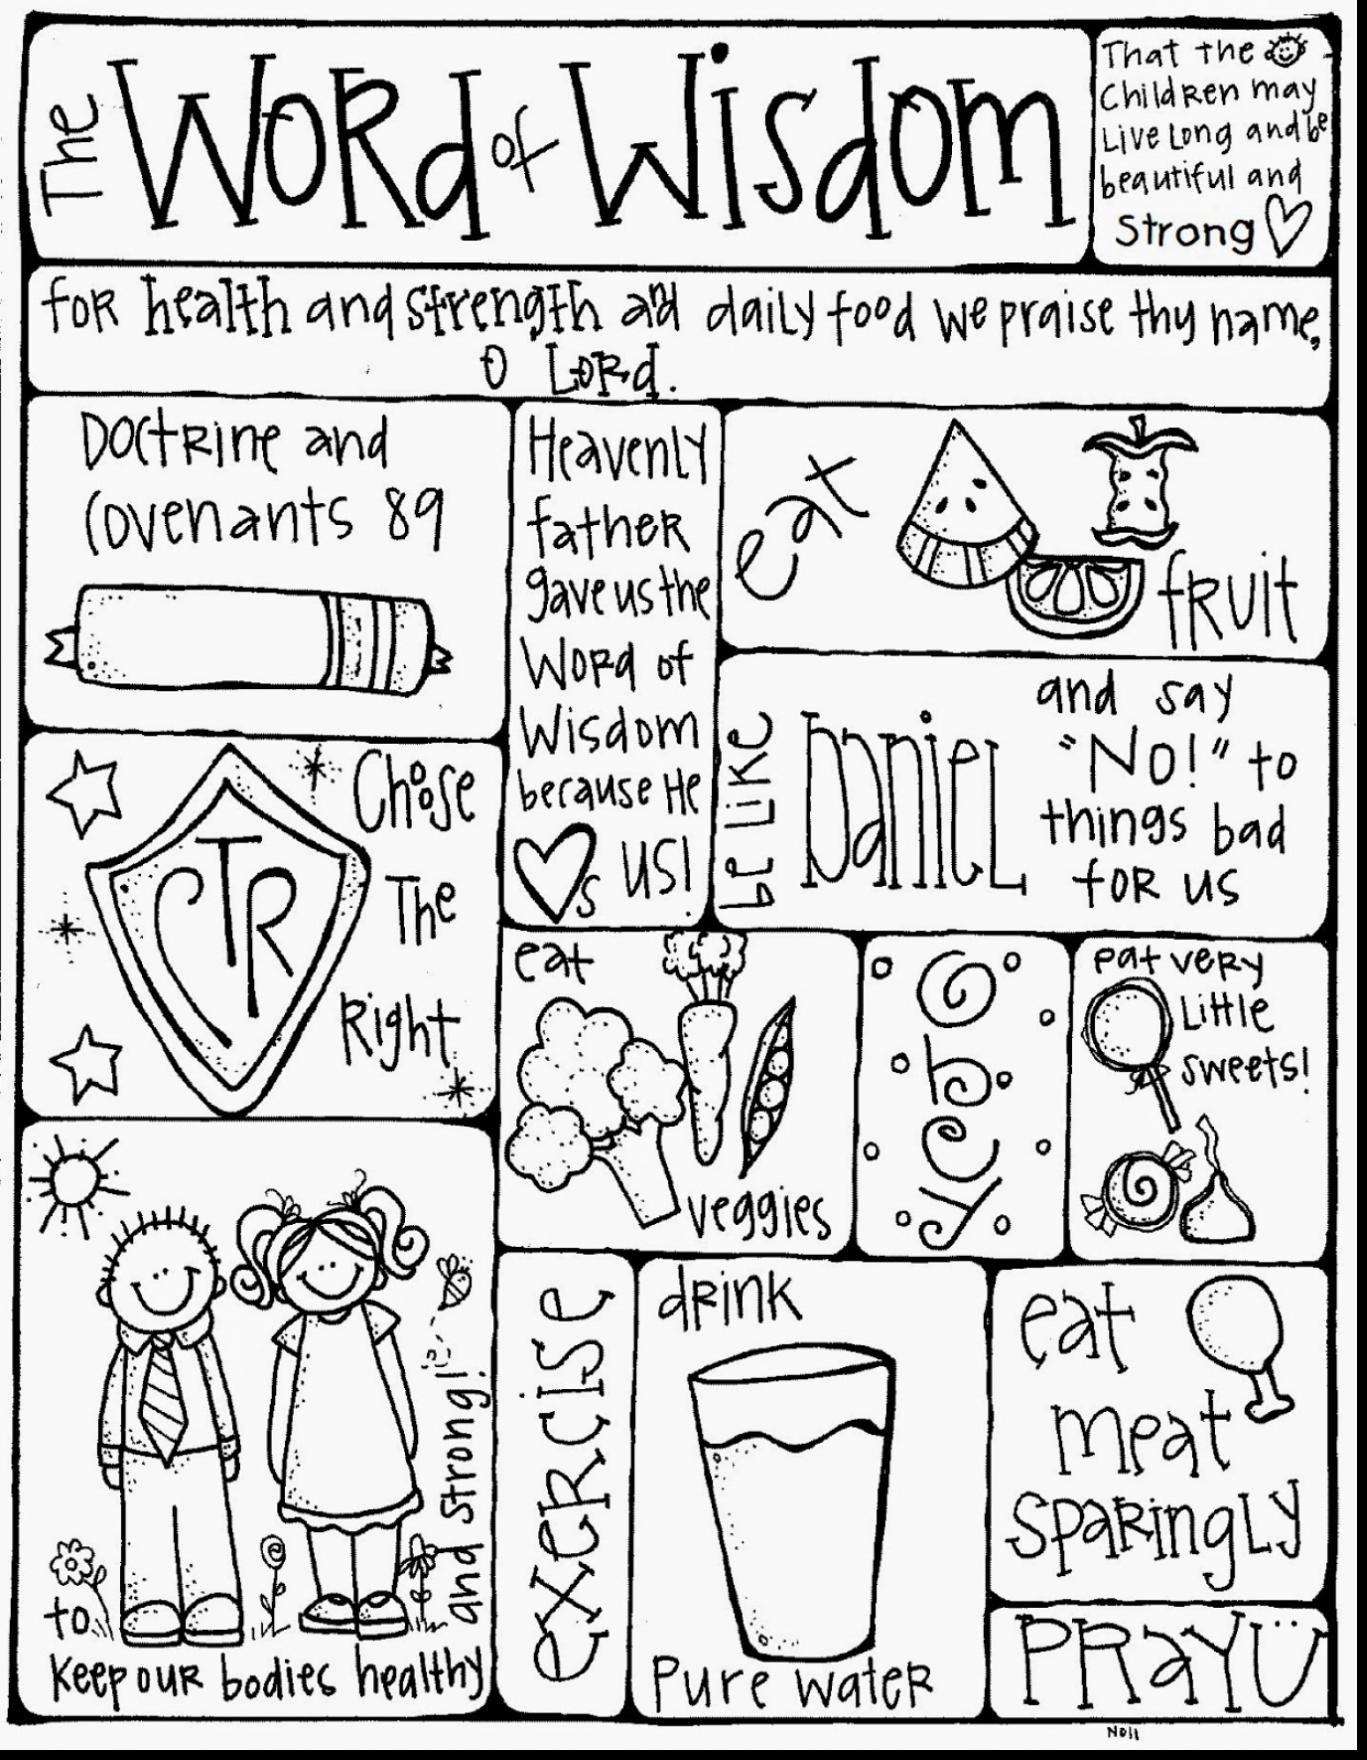 The Word of Wisdom
That the
Children may
Live Long and be
beautiful and
Strong
for health and strength and daily food we praise thy name,
O Lord.
Doctrine and
Covenants 89
Heavenly
father
gave us the
Word of
Wisdom
because He
s us!
eat
fruit
be like Daniel
and say
"No!" to
things bad
for us
Choose
The
Right
CTR
eat
veggies
yeah
eat very
Little
sweets!
to
keep our bodies healthy
and strong!
exercise
drink
Pure water
eat
meat
sparingly
PRAY